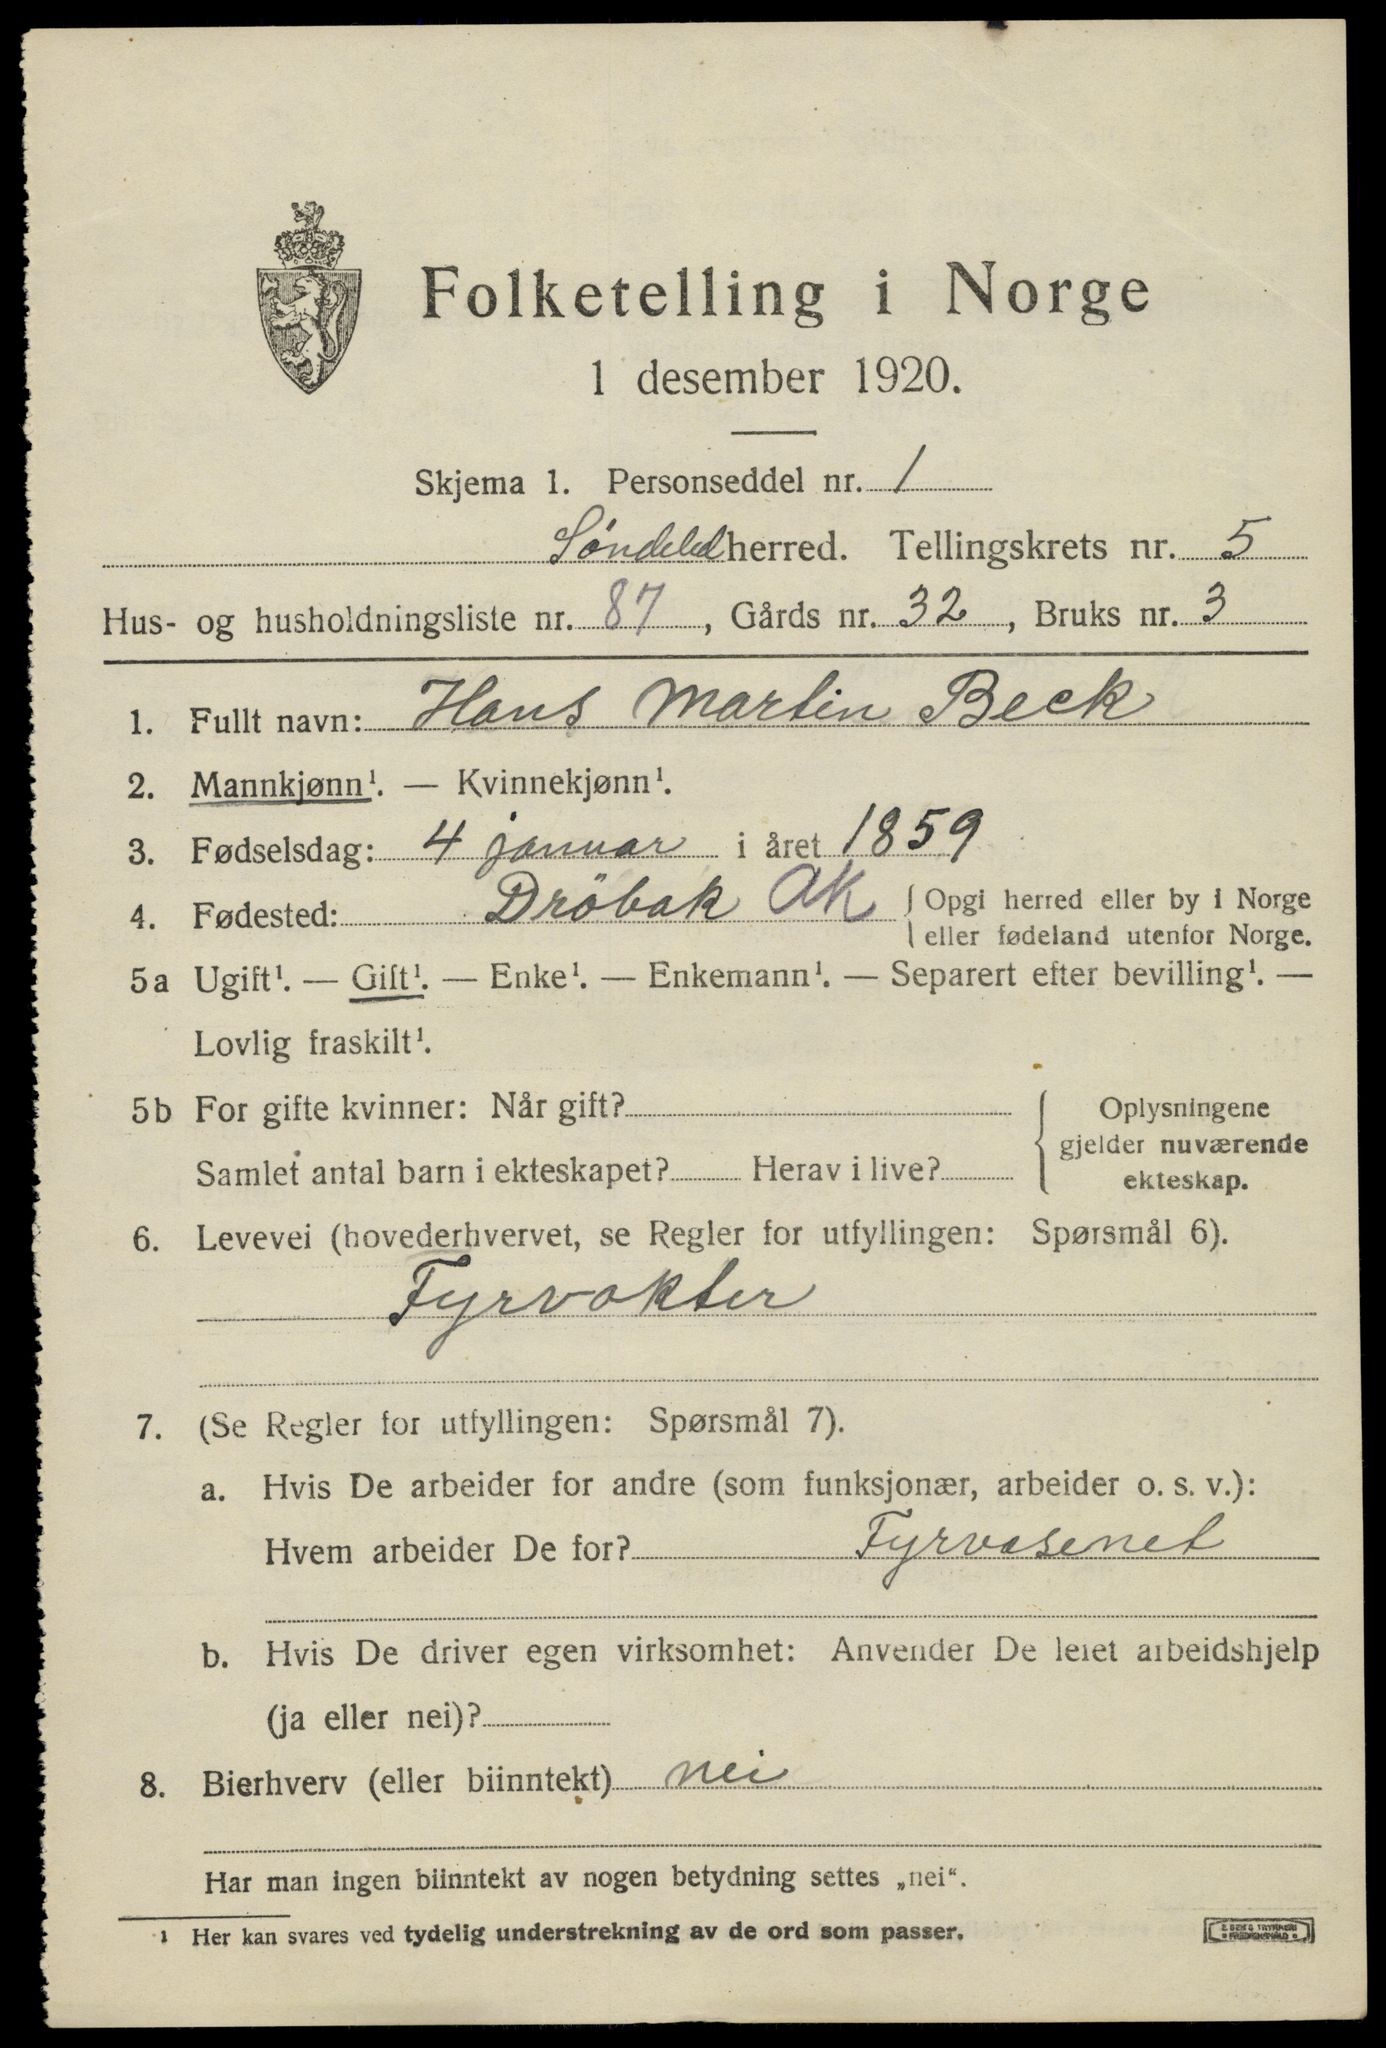 Folketelling i Norge
1 desember 1920.
Skjema 1. Personseddel nr. 1
Söndeled herred. Tellingskrets nr. 5
Hus- og husholdningsliste nr. 87, Gårds nr. 32, Bruks nr. 3
1. Fullt navn: Hans Martin Beck
2. Mannkjønn¹. — Kvinnekjønn¹.
3. Fødselsdag: 4 januar i året 1859
4. Fødested: Dröbak AK { Opgi herred eller by i Norge
eller fødeland utenfor Norge.
5a Ugift¹. — Gift¹. — Enke¹. — Enkemann¹. — Separert efter bevilling¹. —
Lovlig fraskilt¹.
5b For gifte kvinner: Når gift? { Oplysningene
gjelder nuværende
Samlet antal barn i ekteskapet? Herav i live? ekteskap.
6. Levevei (hovederhvervet, se Regler for utfyllingen: Spørsmål 6).
Fyrvokter
7. (Se Regler for utfyllingen: Spørsmål 7).
a. Hvis De arbeider for andre (som funksjonær, arbeider o. s. v.):
Hvem arbeider De for? Fyrvesenet
b. Hvis De driver egen virksomhet: Anvender De leiet arbeidshjelp
(ja eller nei)?
8. Bierhverv (eller biinntekt) nei
Har man ingen biinntekt av nogen betydning settes „nei“.
¹ Her kan svares ved tydelig understrekning av de ord som passer.